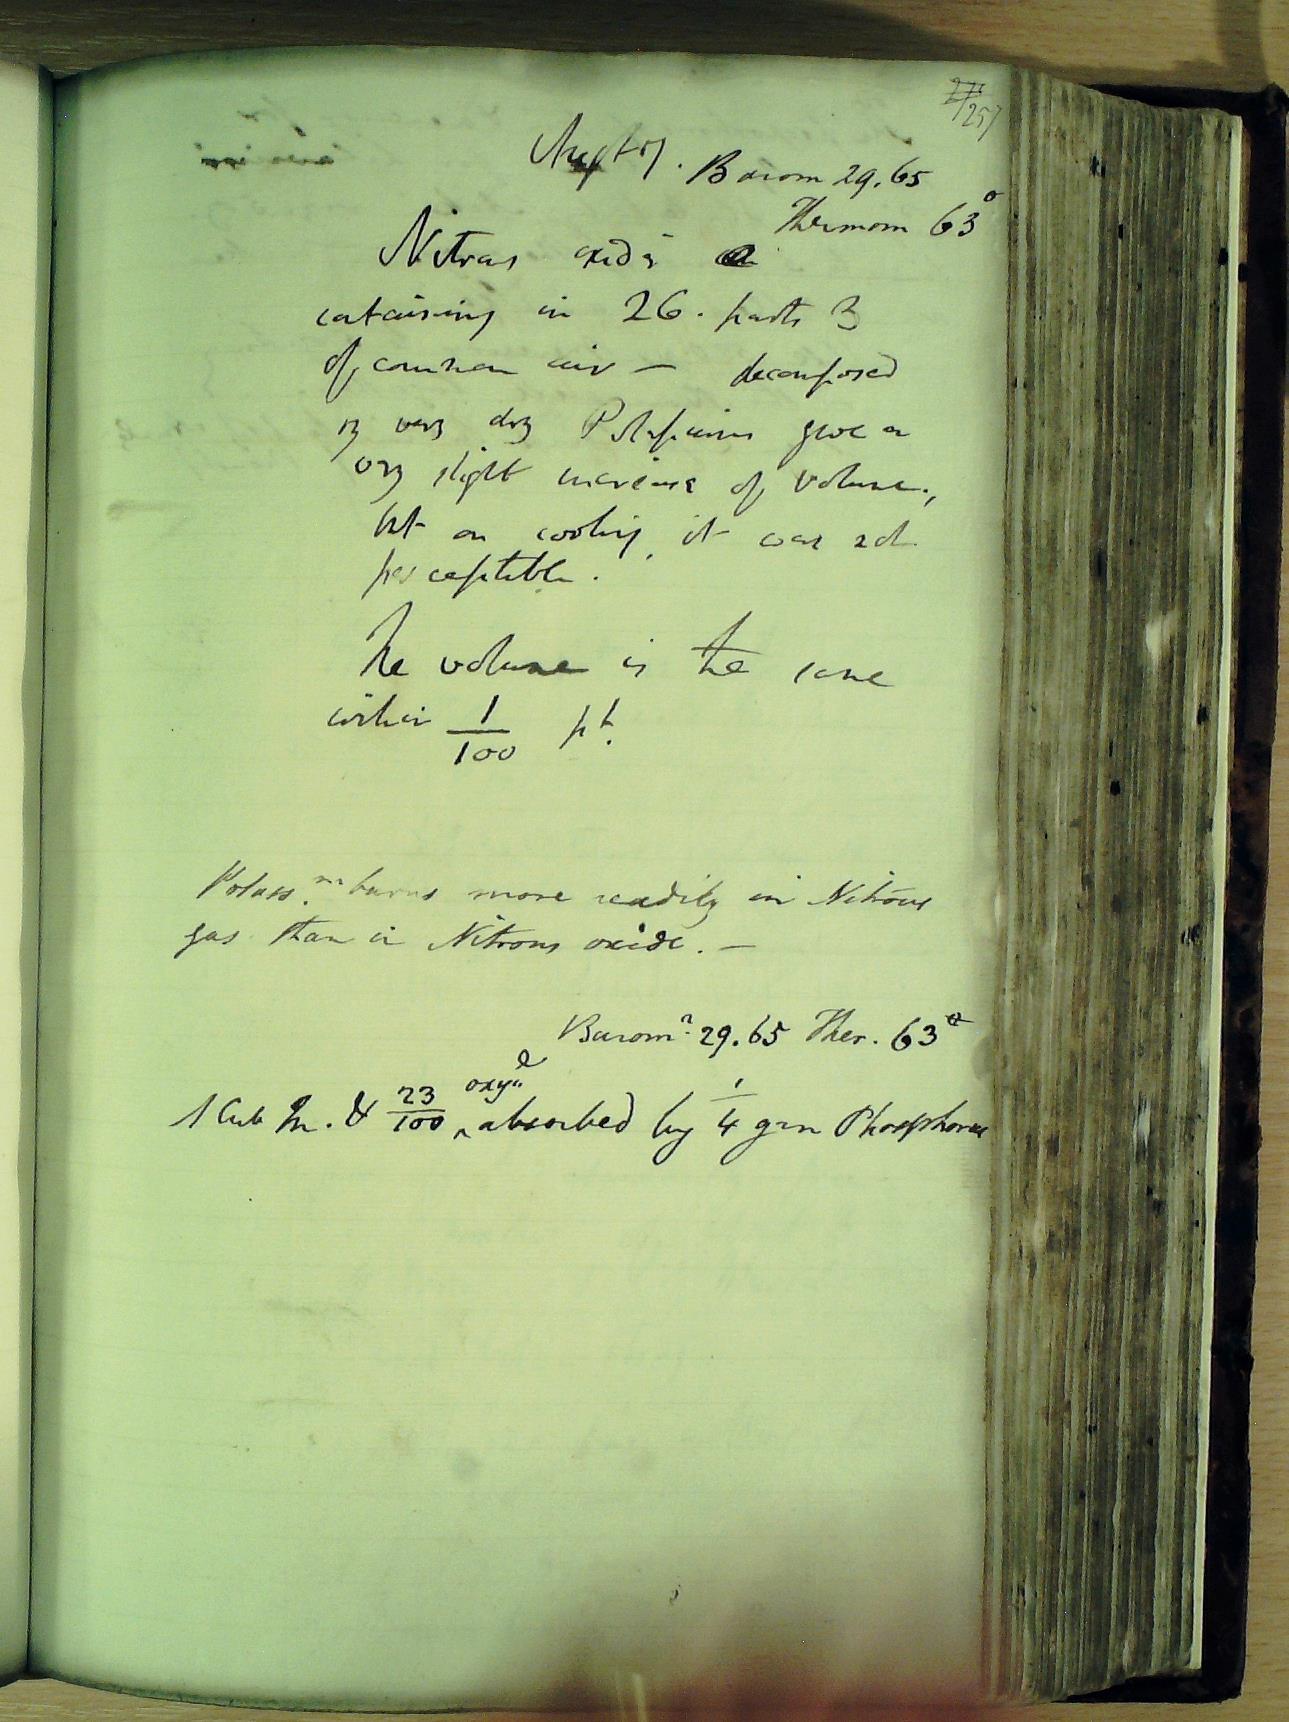 257
Augt 7. Barom 29.65
Thermom 63°
Nitrous oxide
containing in 26. parts 3
of common air — decomposed
by very dry Potassium gave a
very slight increase of volume.,
but on cooling, it was not
perceptible.
The volume is the same
within 1/100 pt.
Potass.m burns more readily in Nitrous
gas than in Nitrous oxide. —
Barom.r 29.65 Ther. 63°
1 Cub In. & 23/100 oxyg absorbed by 1/4 grn Phosphorus